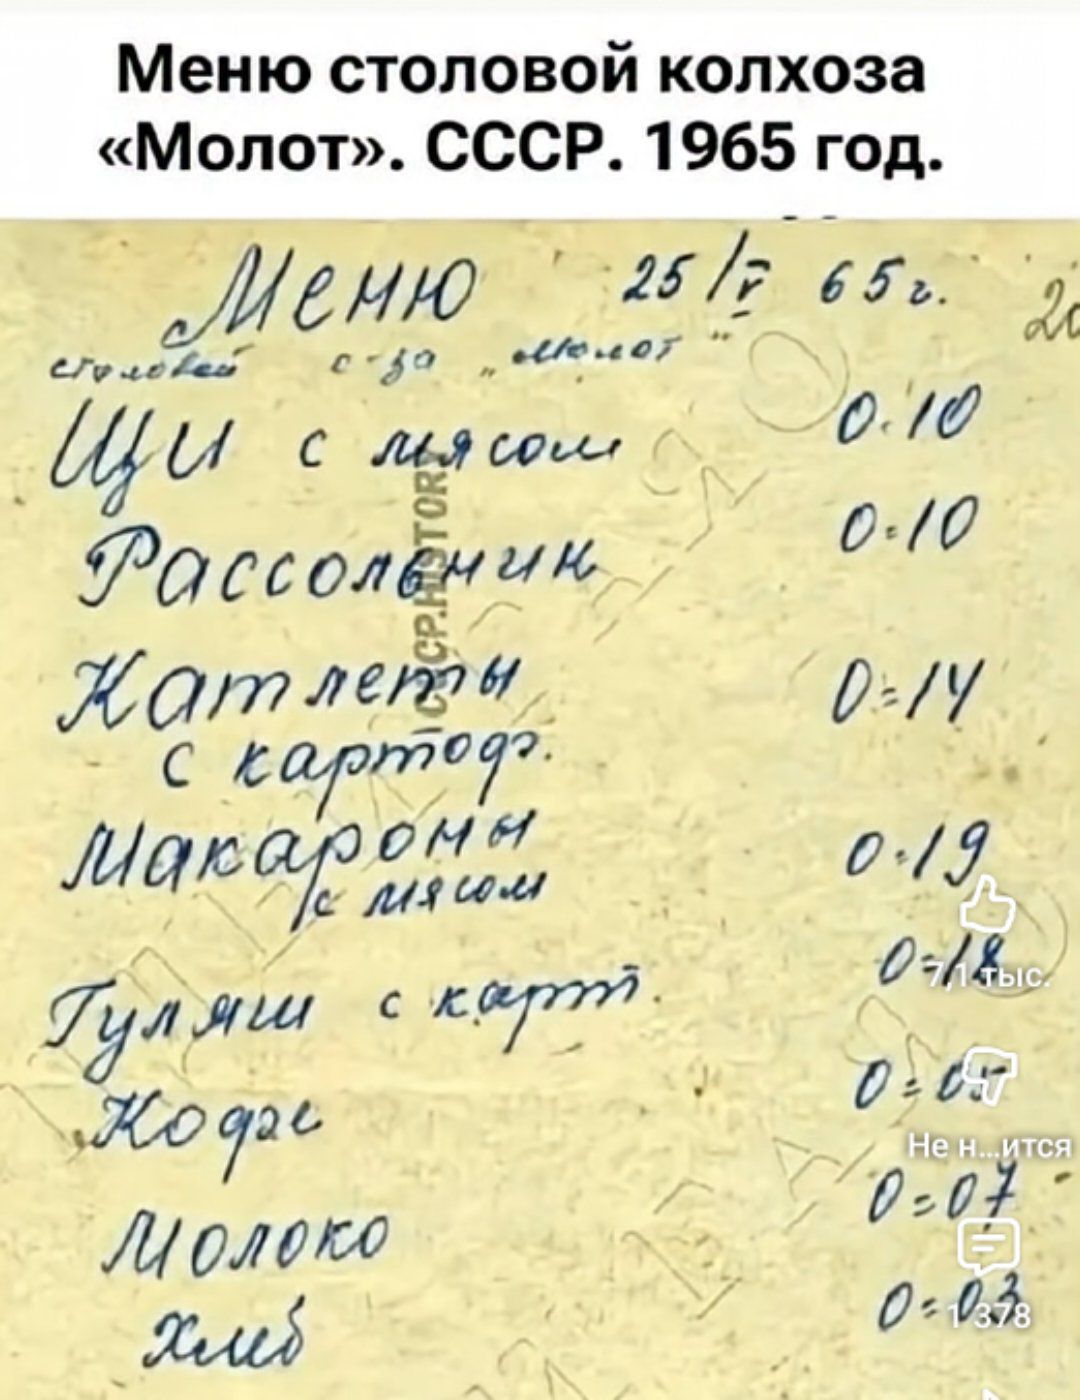 Меню столовой колхоза
«Молот». СССР. 1965 год.
Меню 25/V 65г.
столовой с-за „Молот"
Щи с мясом 0.10
Рассольник 0=10
Катлеты 0=14
с картоф.
Макароны 0.19
с мясом
Гуляш с карт. 0=18
Кофе 0=05
Молоко 0=07
Хлеб 0=03
СССР.HISTORY
7,1 тыс.
Не н...ится
1 378